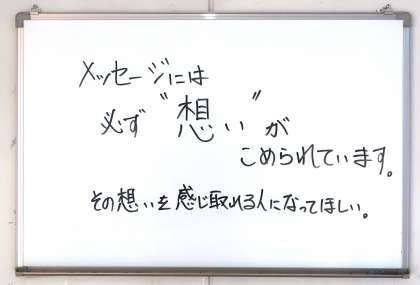 メッセージには
必ず〝想い〟が
こめられています。
その想いを感じ取れる人になってほしい。